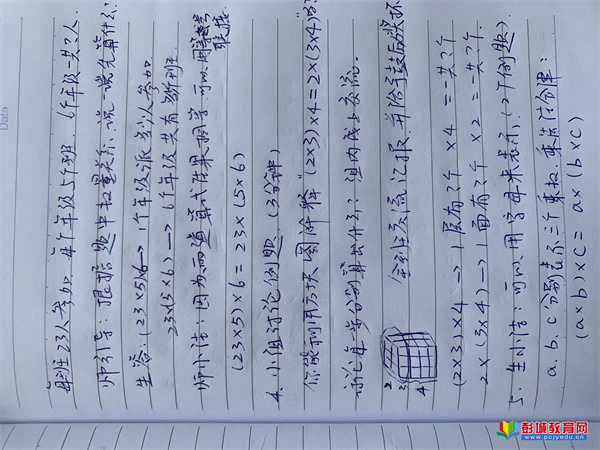 每班23人参加,每个年级5个班,6个年级一共?人.
师引导:根据题中数量关系,说一说先算什么?
生答:(23×5)×6→1个年级派多少人参加
23×(5×6)→6个年级共有多少班
师小结:因为两道算式结果相等,可以用等号联接.
(23×5)×6=23×(5×6)
4.小组讨论例题.(3分钟)
你能利用方块图解释"(2×3)×4=2×(3×4)"吗?
说每一步分别算出什么?组内成员交流.
全班交流汇报,并给予鼓励奖杯
2
3
4
(2×3)×4→1层有?个 ×4=一共?个
2×(3×4)→1面有?个 ×2=一共?个
5.生小结:可以用字母来表示.(2个例题)
a.b.c分别表示三个乘数,乘法结合律:
(a×b)×c=a×(b×c)
Date
彭城教育网
www.pcjyedu.cn